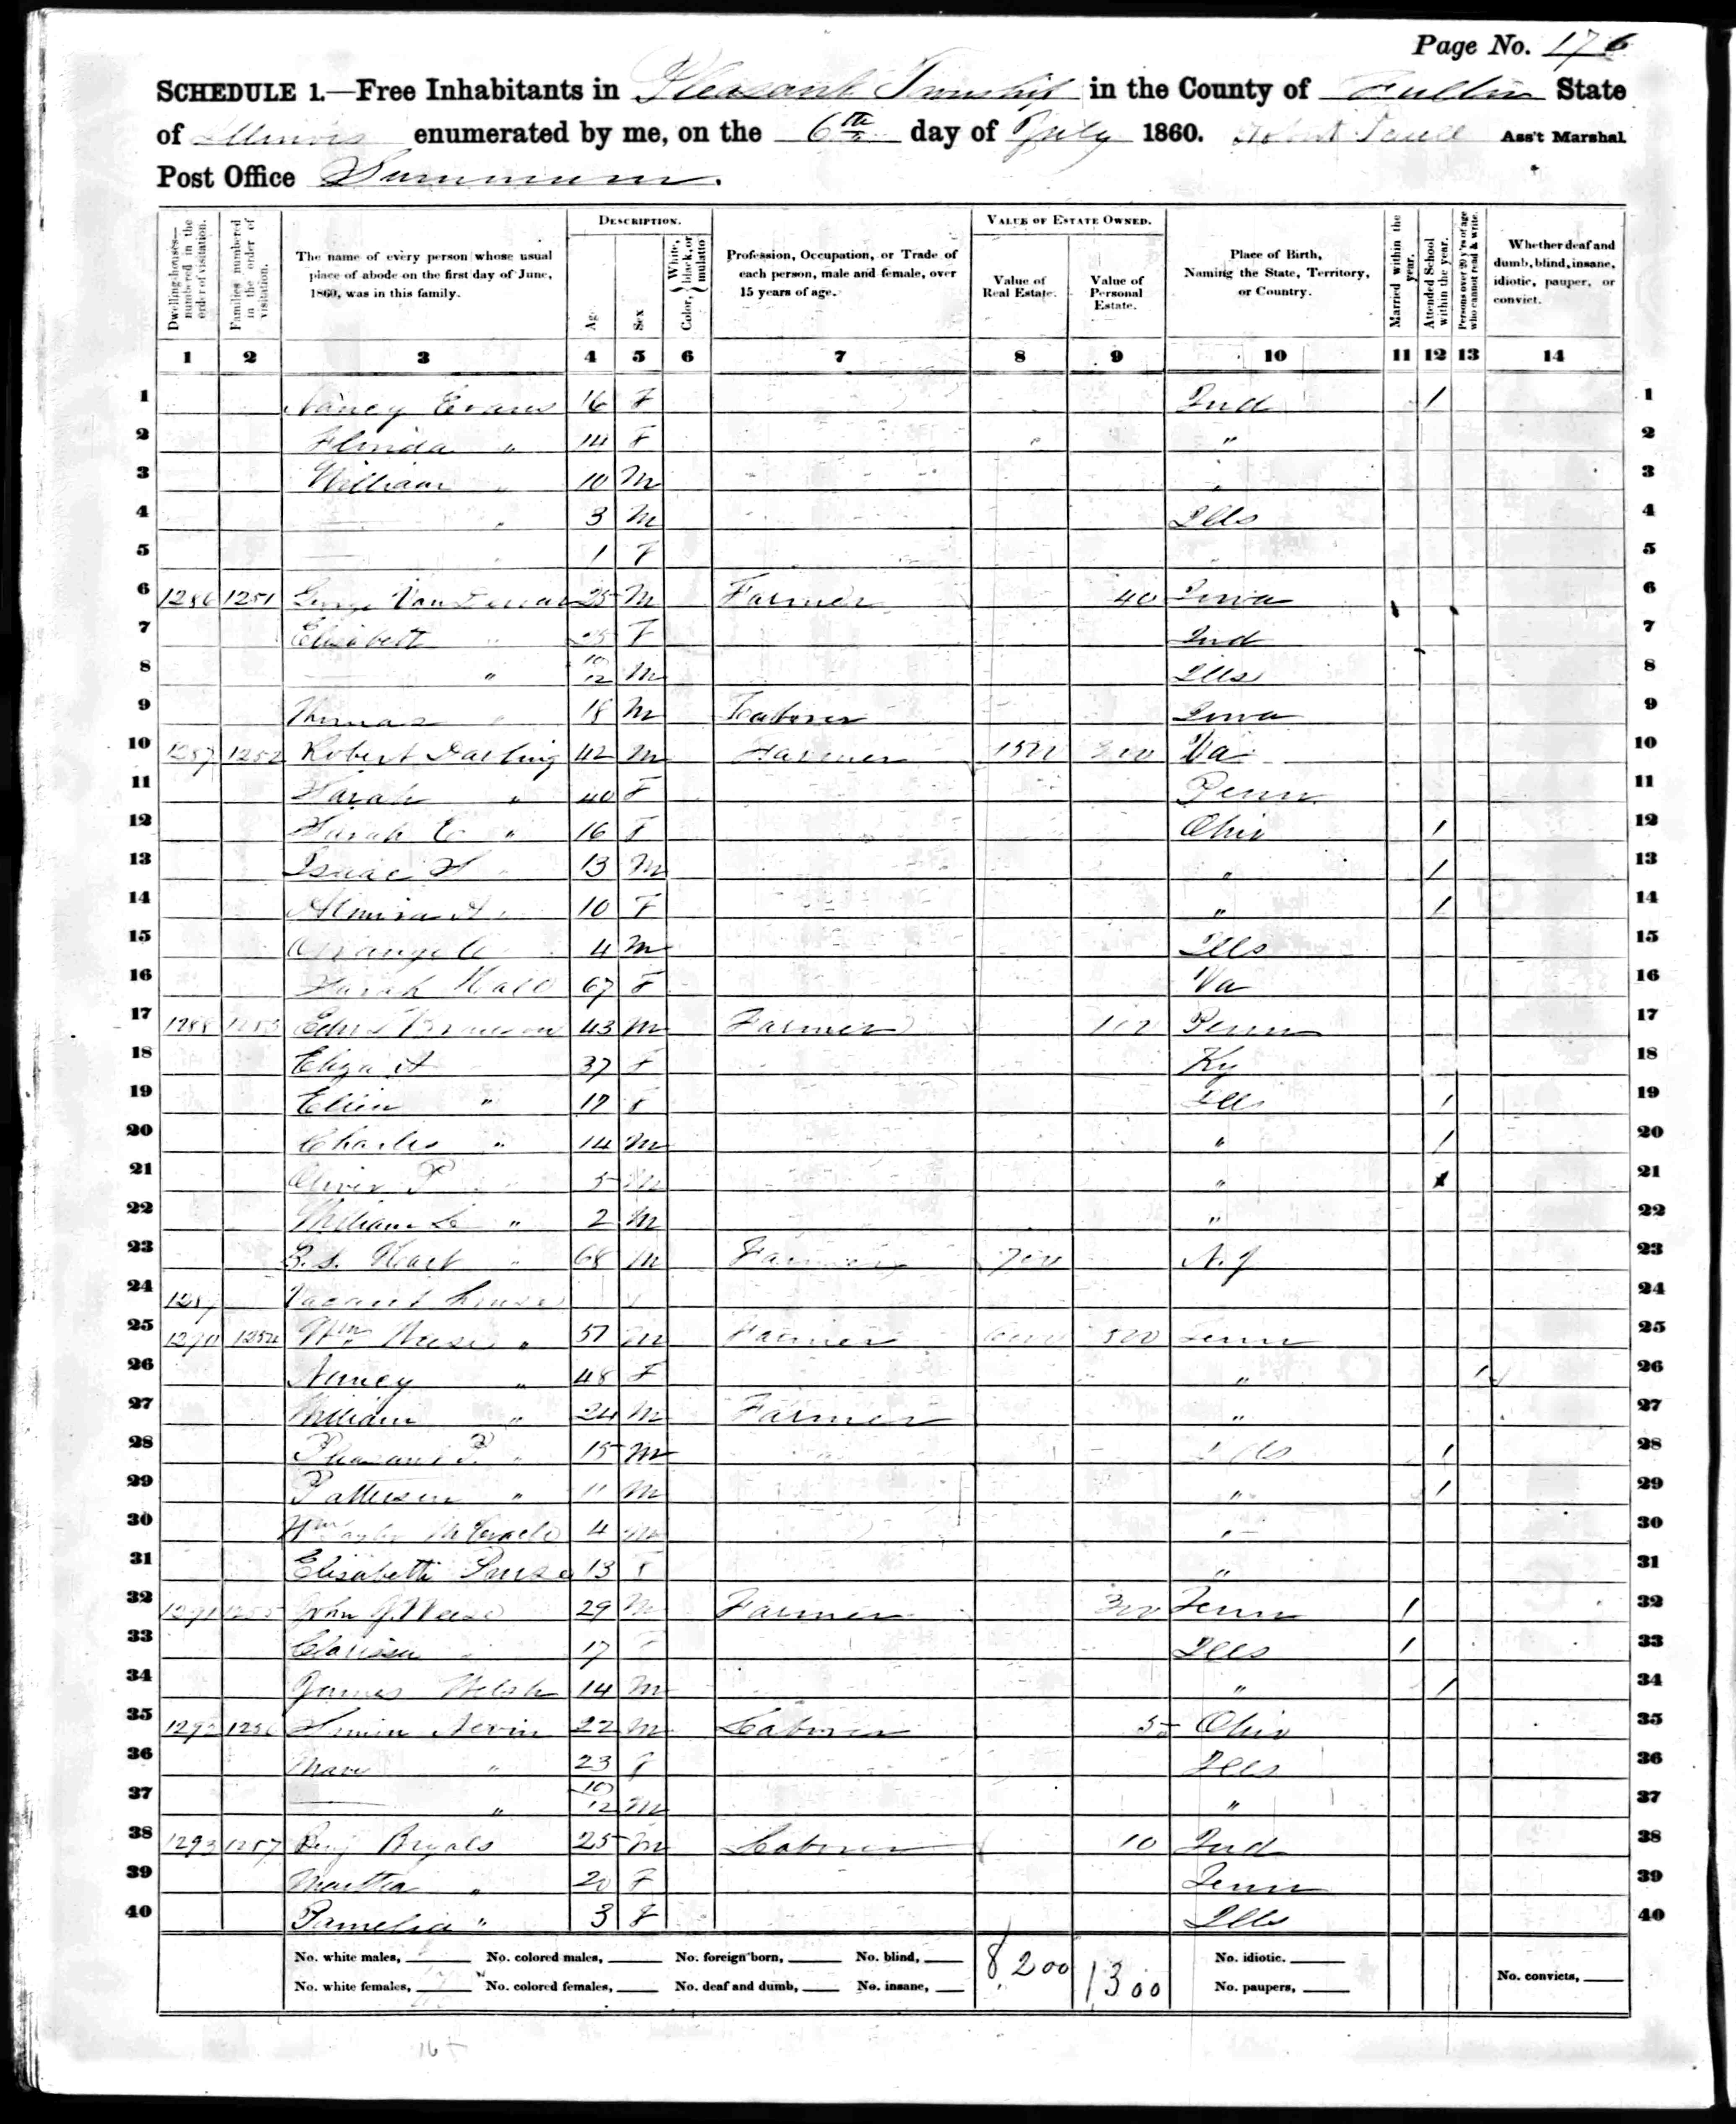 Page No. 176
SCHEDULE 1.—Free Inhabitants in Pleasant Township in the County of Fulton State
of Illinois enumerated by me, on the 6th day of July 1860. Robert Ass't Marshal
Post Office Summum.
Dwelling-houses—numbered in the order of visitation. Families numbered in the order of visitation. The name of every person whose usual place of abode on the first day of June, 1860, was in this family. DESCRIPTION. Age Sex Color, { White, black, or mulatto Profession, Occupation, or Trade of each person, male and female, over 15 years of age. VALUE OF ESTATE OWNED. Value of Real Estate. Value of Personal Estate. Place of Birth, Naming the State, Territory, or Country. Married within the year. Attended School within the year. Persons over 20 y'rs of age who cannot read & write. Whether deaf and dumb, blind, insane, idiotic, pauper, or convict.
1 2 3 4 5 6 7 8 9 10 11 12 13 14
1 Nancy Evans 16 F Ind / 1
2 " 14 F " 2
3 William " 10 M " 3
4 — " 3 M Ills 4
5 — " 1 F " 5
6 1286 1251 George Van 25 M Farmer 40 Iowa 6
7 Elizabeth " 25 F Ind 7
8 — " 10/12 M Ills 8
9 Thomas " 18 M Laborer Iowa 9
10 1287 1252 Robert Darling 42 M Farmer 1500 300 Va 10
11 Sarah " 40 F Penn 11
12 Sarah E " 16 F Ohio / 12
13 Isaac H " 13 M " / 13
14 Almira A " 10 F " / 14
15 4 M Ills 15
16 Sarah Hall 67 F Va 16
17 1288 1253 43 M Farmer 100 Penn 17
18 Eliza A 37 F Ky 18
19 Ellen " 17 F Ills / 19
20 Charles " 14 M " / 20
21 Oliver P " 5 M " 21
22 William " 2 M " 22
23 " 68 M Farmer 700 N. J 23
24 1289 Vacant house 24
25 1290 1254 Wm " 51 M Farmer 6000 500 Tenn 25
26 Nancy " 48 F " / 26
27 William " 24 M Farmer " 27
28 Pleasant P. " 15 M Ills / 28
29 Patterson " 11 M " / 29
30 4 M " 30
31 Elisabeth 13 F " 31
32 1291 1255 John 29 M Farmer 300 Tenn / 32
33 Clarissa " 17 F Ills / 33
34 James Welsh 14 M " / 34
35 1292 1256 Nevin 22 M Laborer 50 Ohio 35
36 " 23 F Ills 36
37 — " 10/12 M " 37
38 1293 1257 Benj Bryals 25 M Laborer 10 Ind 38
39 Martha " 20 F Tenn 39
40 Pamelia " 3 F Ills 40
No. white males, No. colored males, No. foreign born, No. blind, 8,200 1300 No. idiotic.
No. white females, 17 No. colored females, No. deaf and dumb, No. insane, No. paupers, No. convicts,